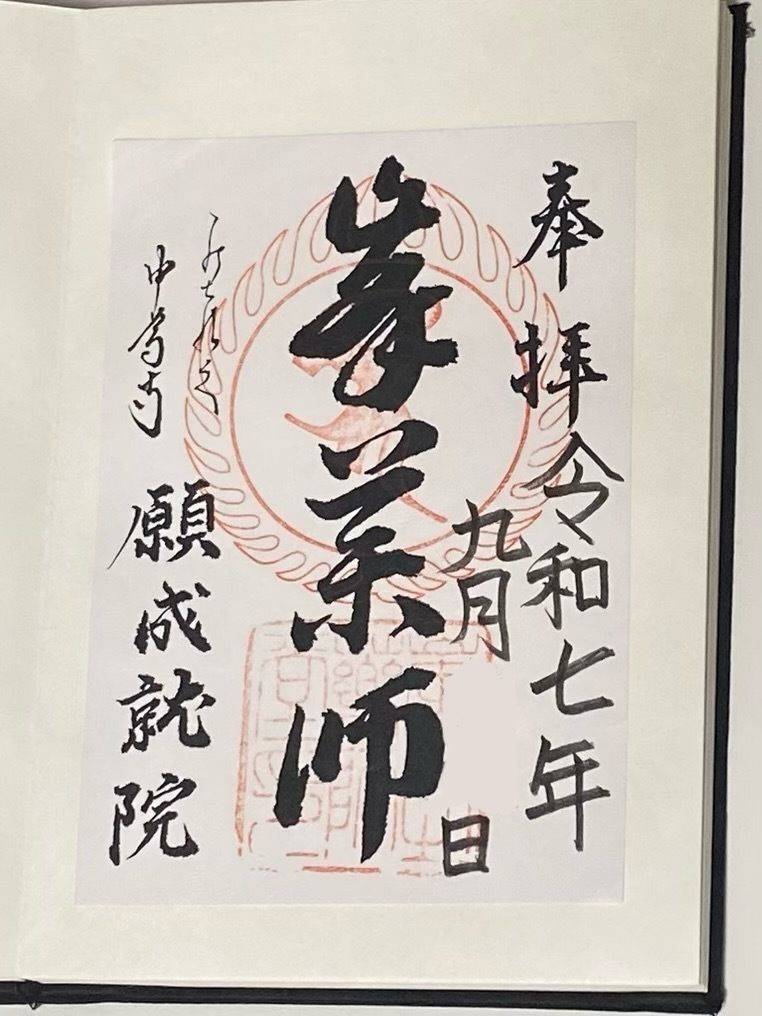 奉拝 令和七年
九月 日
峯薬師
中尊寺 願成就院